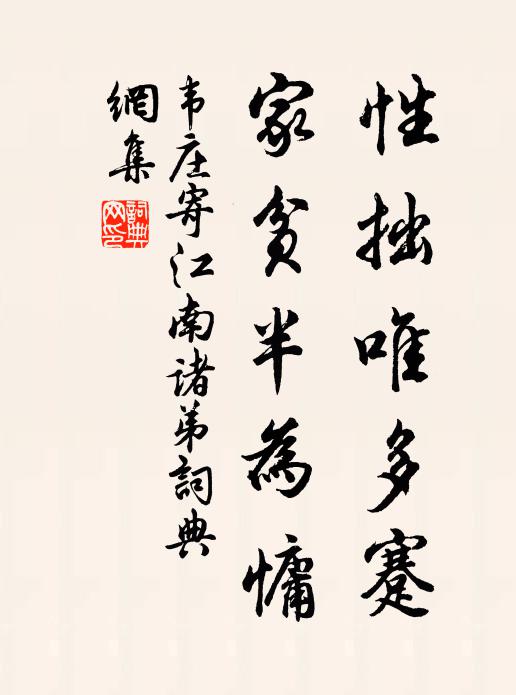 性拙唯多蹇
家貧半為慵
韦庄寄江南诸弟詞典
網集
詞典
网印